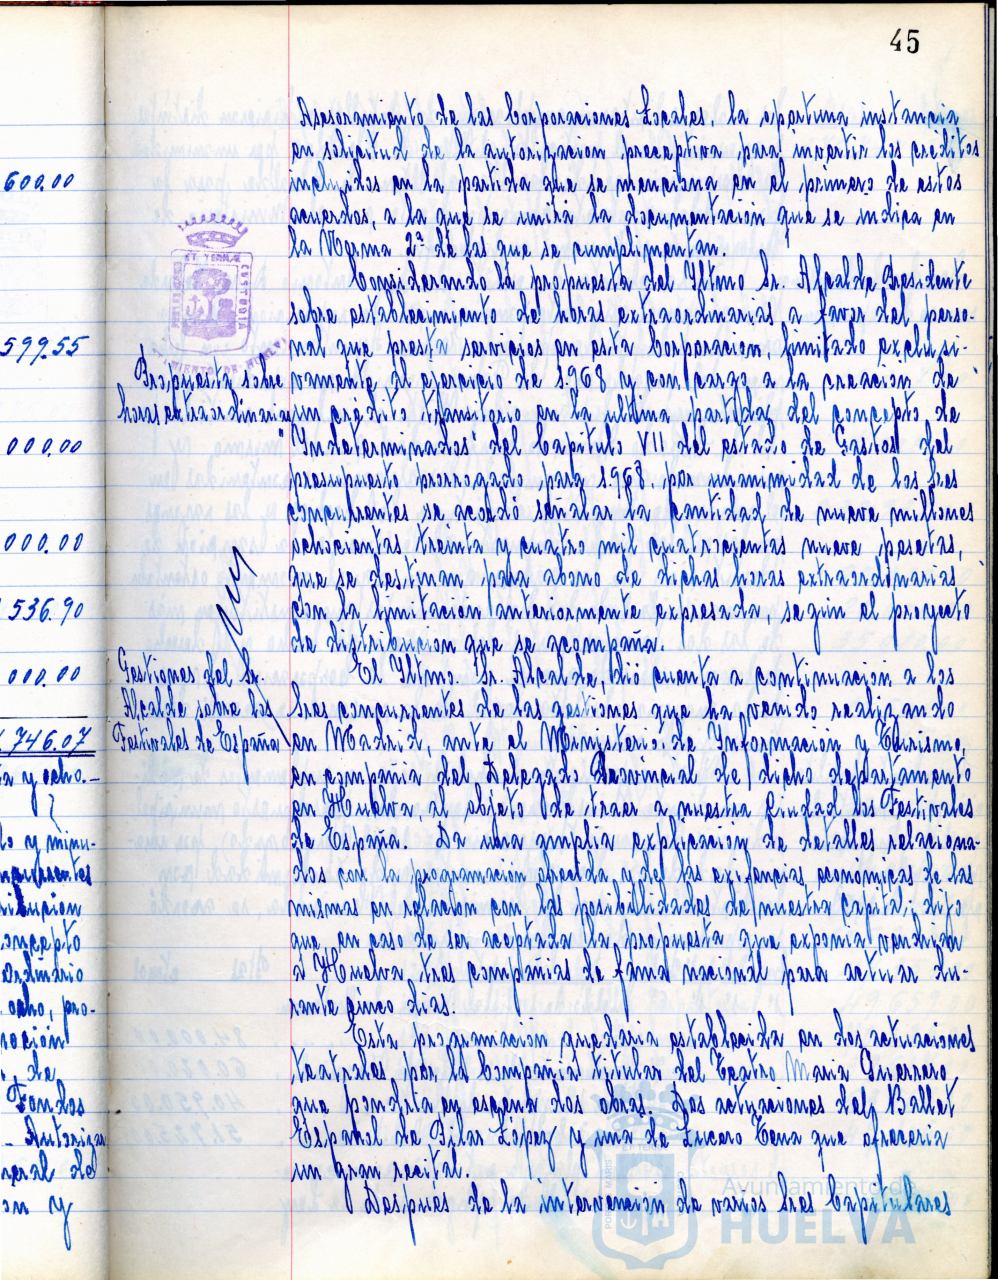 45
Asesoramiento de las Corporaciones Locales, la oportuna instancia
en solicitud de la autorización preceptiva para invertir los creditos
incluidos en la partida que se menciona en el primero de estos
acuerdos, a la que se unirá la documentación que se indica en
la Norma 2ª de las que se cumplimentan.
Considerando la propuesta del Iltmo Sr. Alcalde Presidente
sobre establecimiento de horas extraordinarias a favor del perso-
nal que presta servicios en esta Corporacion, limitado exclusi-
Propuesta sobre
horas extraordinarias
vamente al ejercicio de 1.968 y con cargo a la creacion de
un crédito transitorio en la ultima partida del concepto de
"Indeterminados" del Capitulo VII del estado de Gastos del
presupuesto prorrogado para 1.968, por unanimidad de los Sres
concurrentes se acordó señalar la cantidad de nueve millones
ochocientas treinta y cuatro mil cuatrocientas nueve pesetas,
que se destinan para abono de dichas horas extraordinarias
con la limitacion anteriormente expresada, según el proyecto
de distribucion que se acompaña.
Gestiones del Sr.
Alcalde sobre los
Festivales de España
El Iltmo. Sr. Alcalde, dió cuenta a continuacion a los
Sres concurrentes de las gestiones que ha venido realizando
en Madrid, ante el Ministerio de Informacion y Turismo,
en compañia del Delegado Provincial de dicho departamento
en Huelva al objeto de traer a nuestra Ciudad los Festivales
de España. Da una amplia explicacion de detalles relaciona-
dos con la programación ofrecida y de las exigencias economicas de las
mismas en relacion con las posibilidades de nuestra Capital; dijo
que en caso de ser aceptada la propuesta que exponia vendrian
a Huelva tres compañias de fama nacional para actuar du-
rante cinco dias.
Esta programacion quedaria establecida en dos actuaciones
teatrales por la Compañia titular del Teatro Maria Guerrero
que pondria en escena dos obras. Dos actuaciones del Ballet
Español de Pilar López y una de Lucero Tena que ofreceria
un gran recital.
Después de la intervención de varios Sres Capitulares
600.00
599.55
000.00
000.00
536.90
000.00
746.07
ta y ocho.-
lo y minu-
ncurrentes
ribucion
concepto
ordinario
ocho, pro-
, de
Fondos
- Autorizar
neral de
on y
Ayuntamiento de
HUELVA